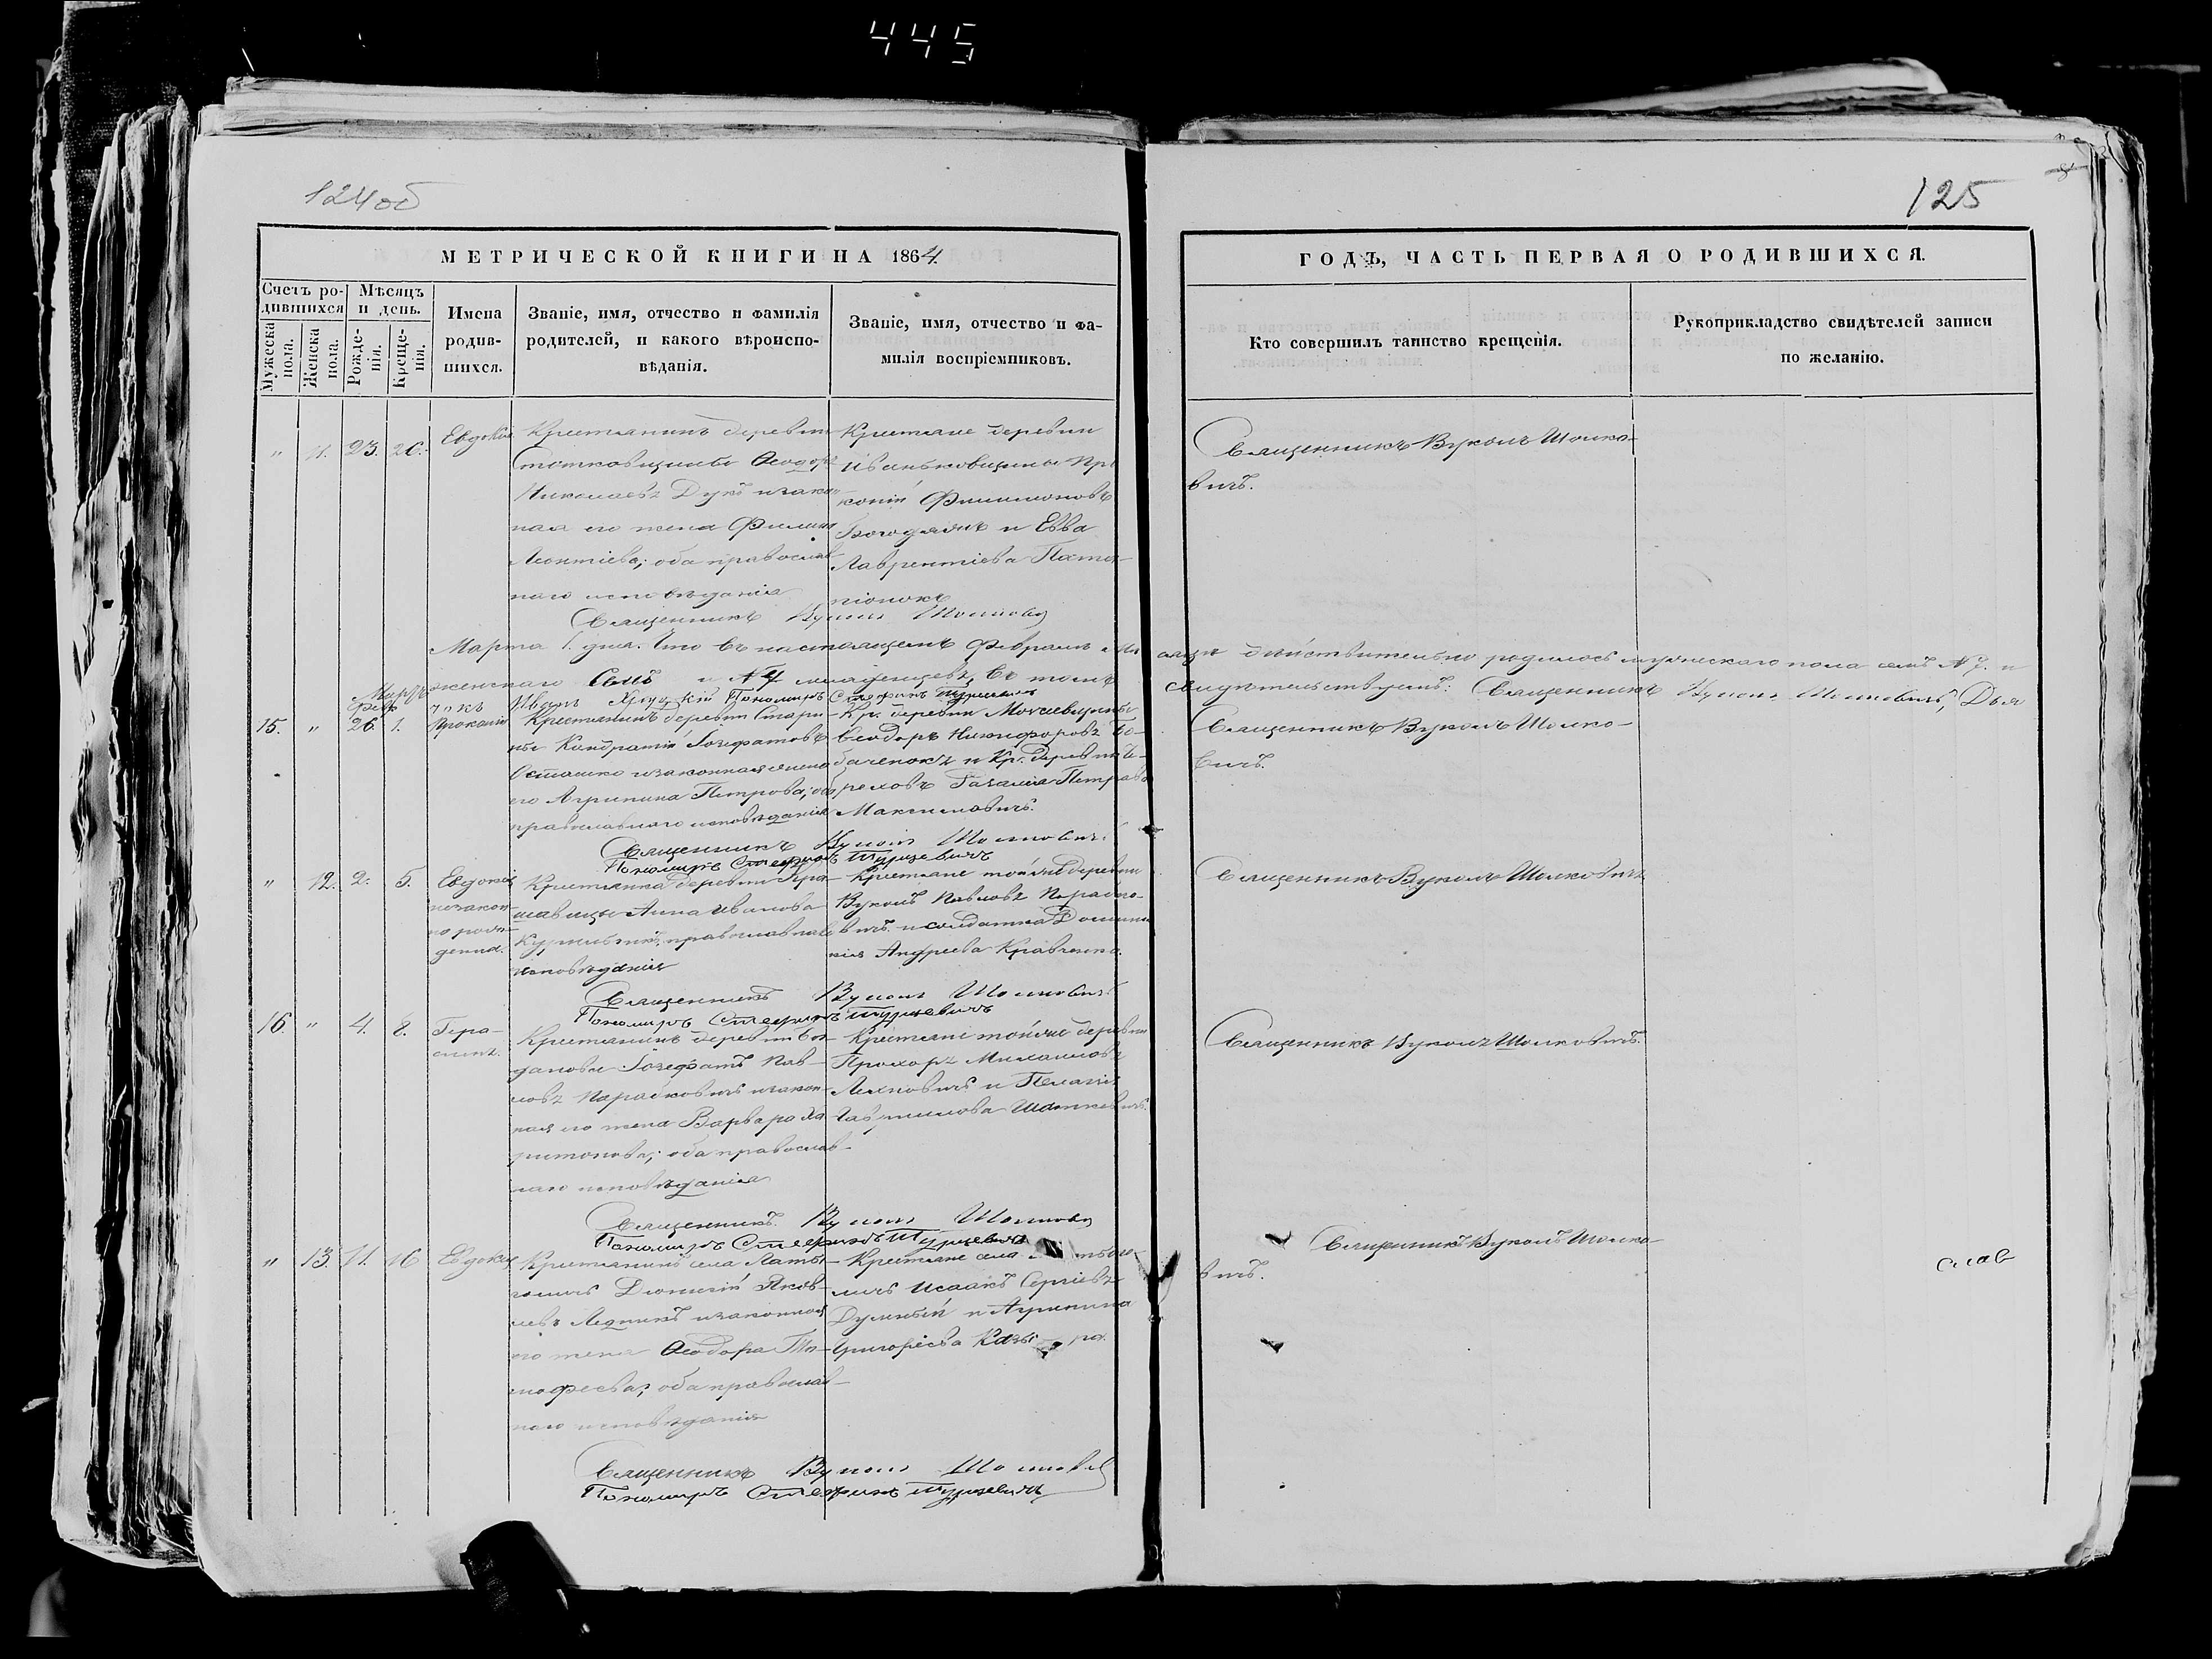 445
124 об
125
МЕТРИЧЕСКОЙ КНИГИ НА 1864
ГОДЪ, ЧАСТЬ ПЕРВАЯ О РОДИВШИХСЯ.
Счетъ ро-
дившихся
Мѣсяцъ
и день.
Мужеска
пола.
Женска
пола.
Рожде-
нія.
Креще-
нія.
Имена
родив-
шихся.
Званіе, имя, отчество и фамилія
родителей, и какого вѣроиспо-
вѣданія.
Званіе, имя, отчество и фа-
милія воспріемниковъ.
Кто совершилъ таинство крещенія.
Рукоприкладство свидѣтелей записи
по желанію.
" 11. 23. 26. Евдокія
Крестьянинъ деревни
Ѳеодоръ
Николаевъ Дукъ и закон-
ная его жена
Леонтіева; оба православ-
наго исповѣданія
Крестьяне деревни
Иваньковщины Про-
копій Филимоновъ
Богодяжъ и Евва
Лаврентіева
Священникъ Вуколъ Шолкович
Священникъ Вуколъ Шолко-
вичъ.
Марта 1. дня. Что въ настоящемъ Февралѣ мѣ-
сяцѣ дѣйствительно родилось мужескаго пола семь № 7. и
женскаго семь и № 7 младенцевъ, въ томъ
свидѣтельствуемъ: Священникъ Вуколъ Шолковичъ, Дья-
чокъ Иванъ Пономарь Стефанъ Турцевичъ
Мартъ
Февр.
15. " 26. 1. Прокопій
Крестьянинъ деревни Стари-
ны Кондратій Іозефатовъ
Осташко и законная жена
его Агрипина Петрова; оба
православнаго исповѣданія
Кр. деревни
Ѳеодоръ Никифоровъ Бо-
баченокъ и Кр. деревни Че-
реховъ Петрова
Максимовичъ.
Священникъ Вуколъ Шолковичъ
Пономарь Стефанъ Турцевичъ
Священникъ Вуколъ Шолко-
вичъ.
" 12. 2. 5. Евдокія
незакон-
но рож-
денна.
Крестьянка деревни Кра-
шавицы Анна Иванова
православнаго
исповѣданія
Крестьяне той же деревни
Вуколъ Павловъ Парабко-
вичъ и солдатка Домини-
кія Андреева Кравченко.
Священникъ Вуколъ Шолковичъ
Пономарь Стефанъ Турцевичъ
Священникъ Вуколъ Шолковичъ
16. " 4. 8. Гера-
симъ.
Крестьянинъ деревни Бог-
дановы Іозефатъ Пав-
ловъ Парабковичъ и закон-
ная его жена Варвара Ха-
ритонова; оба православ-
наго исповѣданія
Крестьяне той же деревни
Прохоръ Михаиловъ
Ляхновичъ и Пелагія
Гавриилова
Священникъ Вуколъ Шолкович
Пономарь Стефанъ Турцевичъ
Священникъ Вуколъ Шолковичъ.
" 13. 11. 16 Евдокія
Крестьянинъ села Латы-
голичъ Діонисій Яков-
левъ Ледникъ и законная
его жена Ѳеодора Ти-
мофеева; оба православ-
наго исповѣданія
Крестьяне села
личъ Исаакъ Сергіевъ
Думный и Агрипина
Григоріева
Священникъ Вуколъ Шолкович
Пономарь Стефанъ Турцевичъ
Священникъ Вуколъ Шолко-
вичъ.
слав